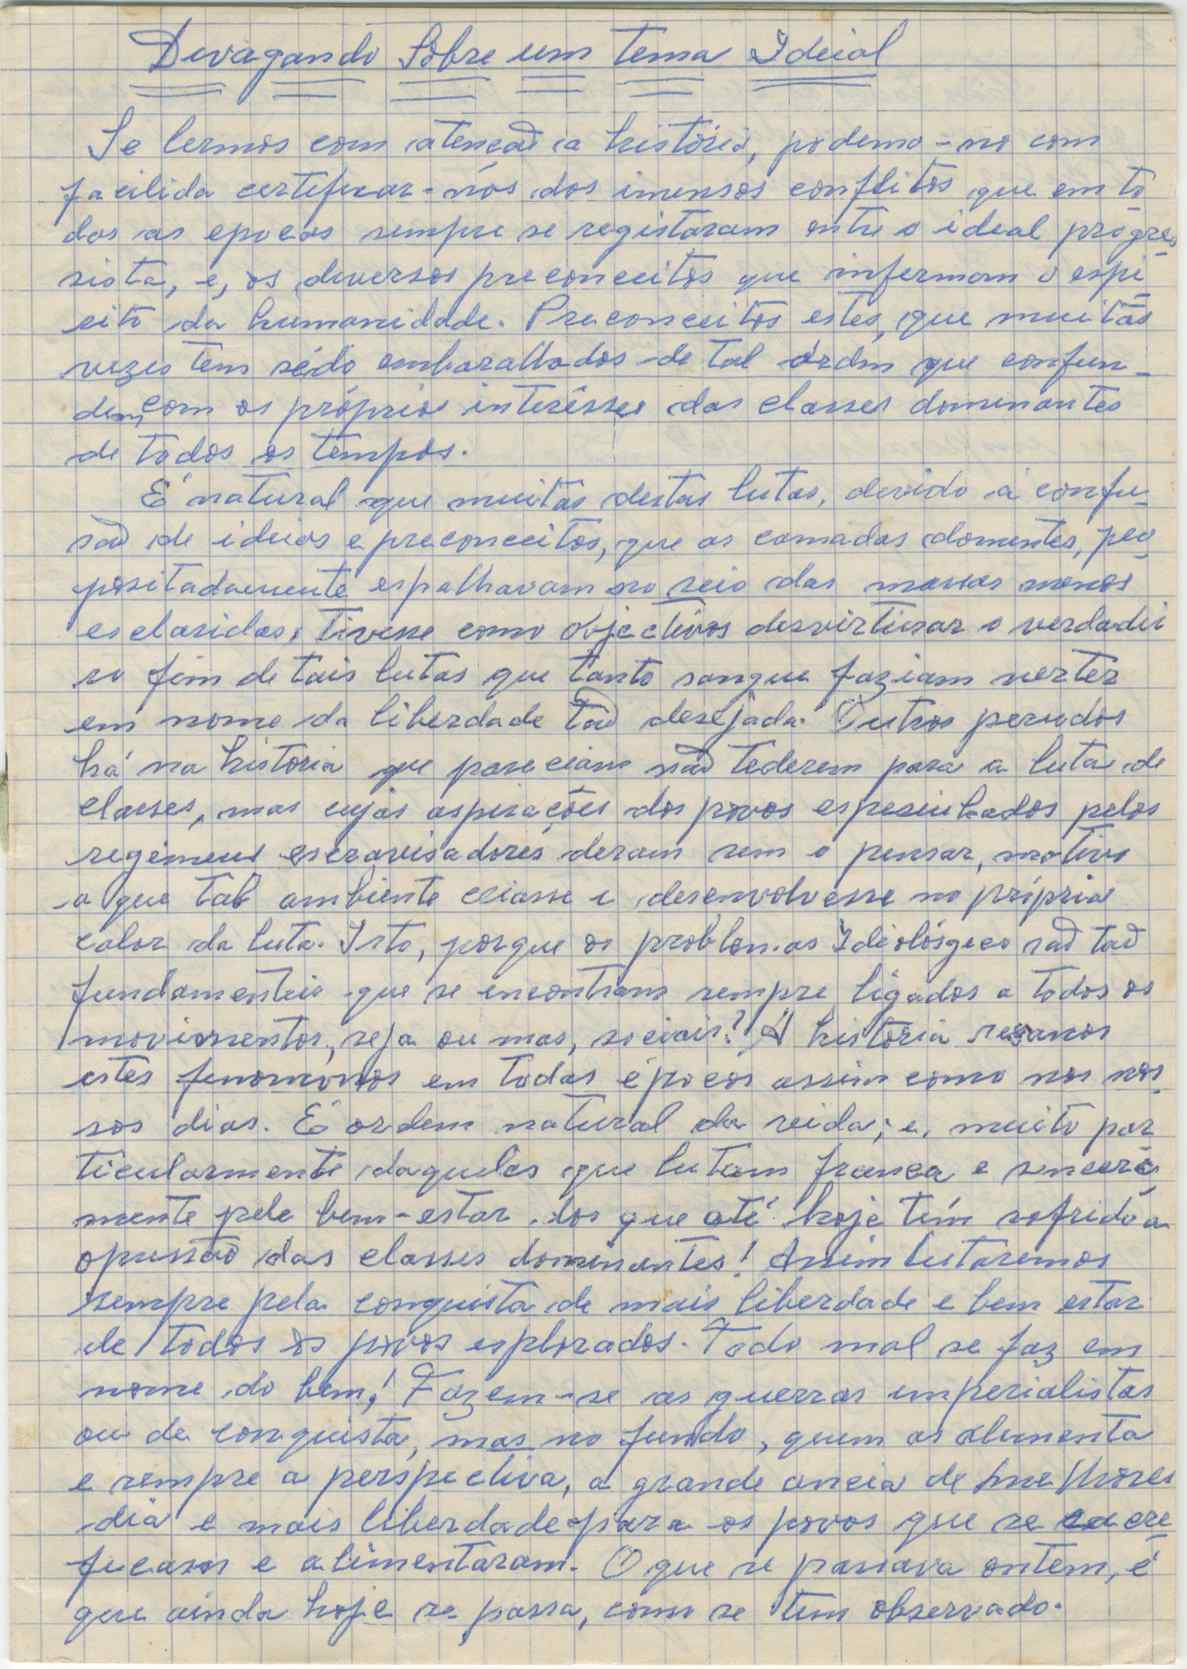 Divagando Sobre um tema Ideial
Se lermos com atencaõ a história, podemo-no com
facilida certeficar-nós dos imensos conflitos que em to
das as epocas sempre se registaram entre o ideal progres
sista, e, os diversos preconceitos que infermam o espi
rito da humanidade. Preconceitos estes, que muitas
vezes tem sédo embaralhados de tal órdm que confun_
dem, com os próprios interêsses das classes dominantes
de todos os tempos.
É natural que muitas destas lutas, devido á confu_
saõ de ideias e preconceitos, que as camadas domentes, pro_
positadamente espalhavam no seio das massas menos
esclaridas, tivesse como objectivos desvirtuar o verdadei
ro fim de tais lutas que tanto sangue faziam verter
em nome da liberdade taõ desejada. Outros periodos
há na historia que pareciam naõ tederem para a luta de
classes, mas cujas aspirações dos povos espesinhados pelos
regimens escravisadores deram sem o pensar, motivo
a que tal ambiente criasse e desenvolvesse no próprio
calor da luta. Isto, porque os problemas Ideológico saõ taõ
fundamenteis que se encontram sempre ligados a todos os
movimentos, seja ou mas, sociais? A história
estes fenomonos em todas épocas assim como nos nos_
sos dias. É ordem natural da vida; e, muito par
ticularmente daqueles que lutam franca e sincera
mente pelo bem-estar dos que até hoje têm sofrido a
opressaõ das classes dominantes! Assim lutaremos
sempre pela conquista de mais liberdade e bem estar
de todos os povos explorados. Todo mal se faz em
nome do bem! Fazem-se as guerras imperialistas
ou de conquista, mas no fundo, quem as alimenta
e sempre a perspectiva, a grande anceia de melhores
dia e mais liberdade para os povos que se sacre
ficaram e alimentaram. O que se passava ontem, é
que ainda hoje se passa, como se tem observado.